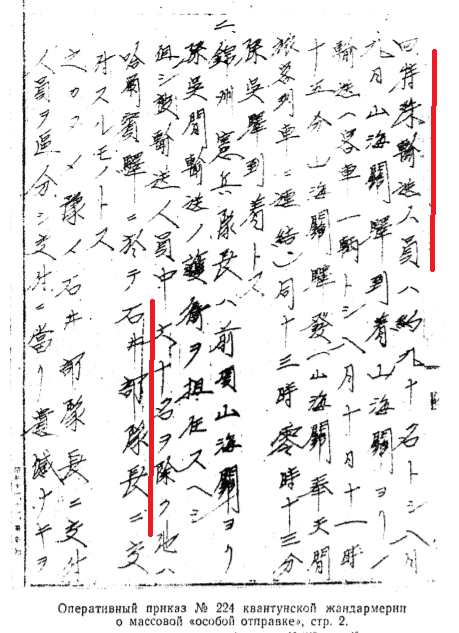 四特殊輸送人員ハ約九十名トシ八月
九日山海關驛到着山海關ヨリノ
輸送ハ客車一輛トシ八月十日十一時
十五分山海關驛發(山海關奉天間
旅客列車ニ連結)同十三時零時十三分
孫吳驛到着トス
二錦州憲兵隊長ハ前項山海關ヨリ
孫吳間輸送ノ護衛ヲ担任スヘシ
但シ輸送人員中六十名ヲ除ク他ハ
哈爾賓驛ニ於テ石井部隊長ニ交
付スルモノトス
之カタメ豫メ石井部隊長ニ交付
人員ヲ區分シ交付ニ當リ遺憾ナキヲ
Оперативный приказ № 224 квантунской жандармерии
о массовой «особой отправке», стр. 2.